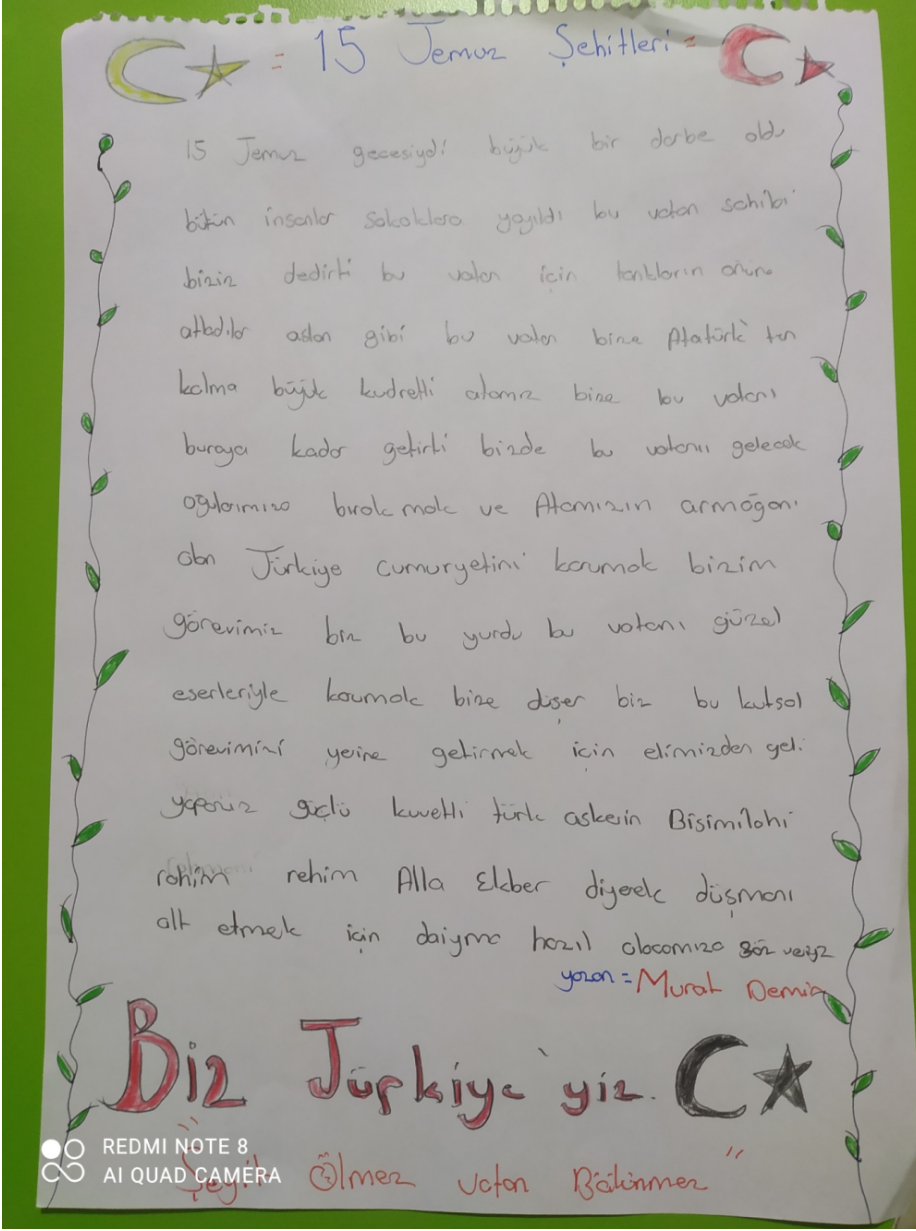 = 15 Temuz Şehitleri =
15 Temuz gecesiydi büyük bir darbe oldu
bütün insanlar sokoklara yayıldı bu vatan sahibi
biziz dedirti bu vatan için tankların önüne
atladılar aslan gibi bu vatan bize Atatürk'ten
kalma büyük kudretli atamız bize bu vatanı
buraya kadar getirti bizde bu vatanı gelecek
oğularımıza bırakmak ve Atamızın armağanı
olan Türkiye cumuryetini korumak bizim
görevimiz biz bu yurdu bu vatanı güzel
eserleriyle korumak bize düşer biz bu kutsal
görevimizi yerine getirmek için elimizden geli
yaparız güçlü kuvetli türk askerin Bisimilahi
rahim rehim Alla Ekber diyerek düşmanı
alt etmek için daiyma hazıl olacamıza söz veriyz
yazan = Murat Demir
Biz Türkiye'yiz.
"Şeyit Ölmez vatan Bölünmez"
REDMI NOTE 8
AI QUAD CAMERA